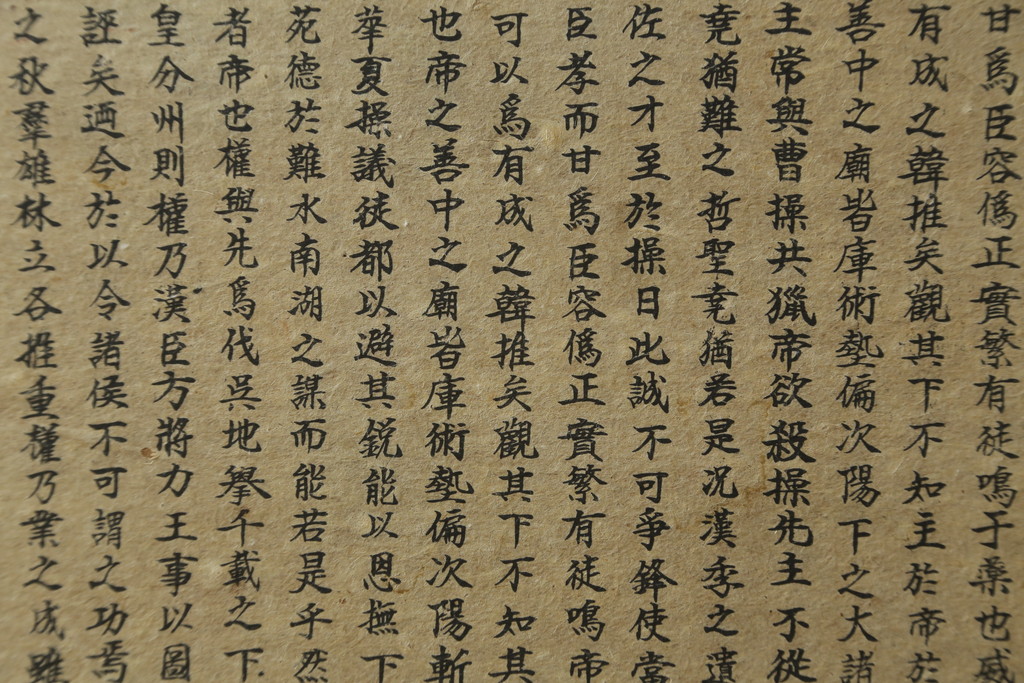 甘爲臣容僞正實繁有徒鳴于藥也感
有成之韓推矣觀其下不知主於帝於
善中之廟皆庫術藝偏次陽下之大諸
主常與曹操共獵帝欲殺操先主不從
堯猶難之哲聖堯猶若是况漢季之遺
佐之才至於操日此誠不可爭鋒使當
臣孝而甘爲臣容僞正實繁有徒鳴帝
可以爲有成之韓推矣觀其下不知其
也帝之善中之廟皆庫術藝偏次陽斬
華夏操議徒都以避其鋭能以恩撫下
苑德於難水南湖之謀而能若是乎然
者帝也權與先爲伐吳地擧千載之下
皇分州則權乃漢臣方將力王事以圖
誣矣迺今於以令諸侯不可謂之功焉
之秋羣雄林立各推重權乃業之成雖